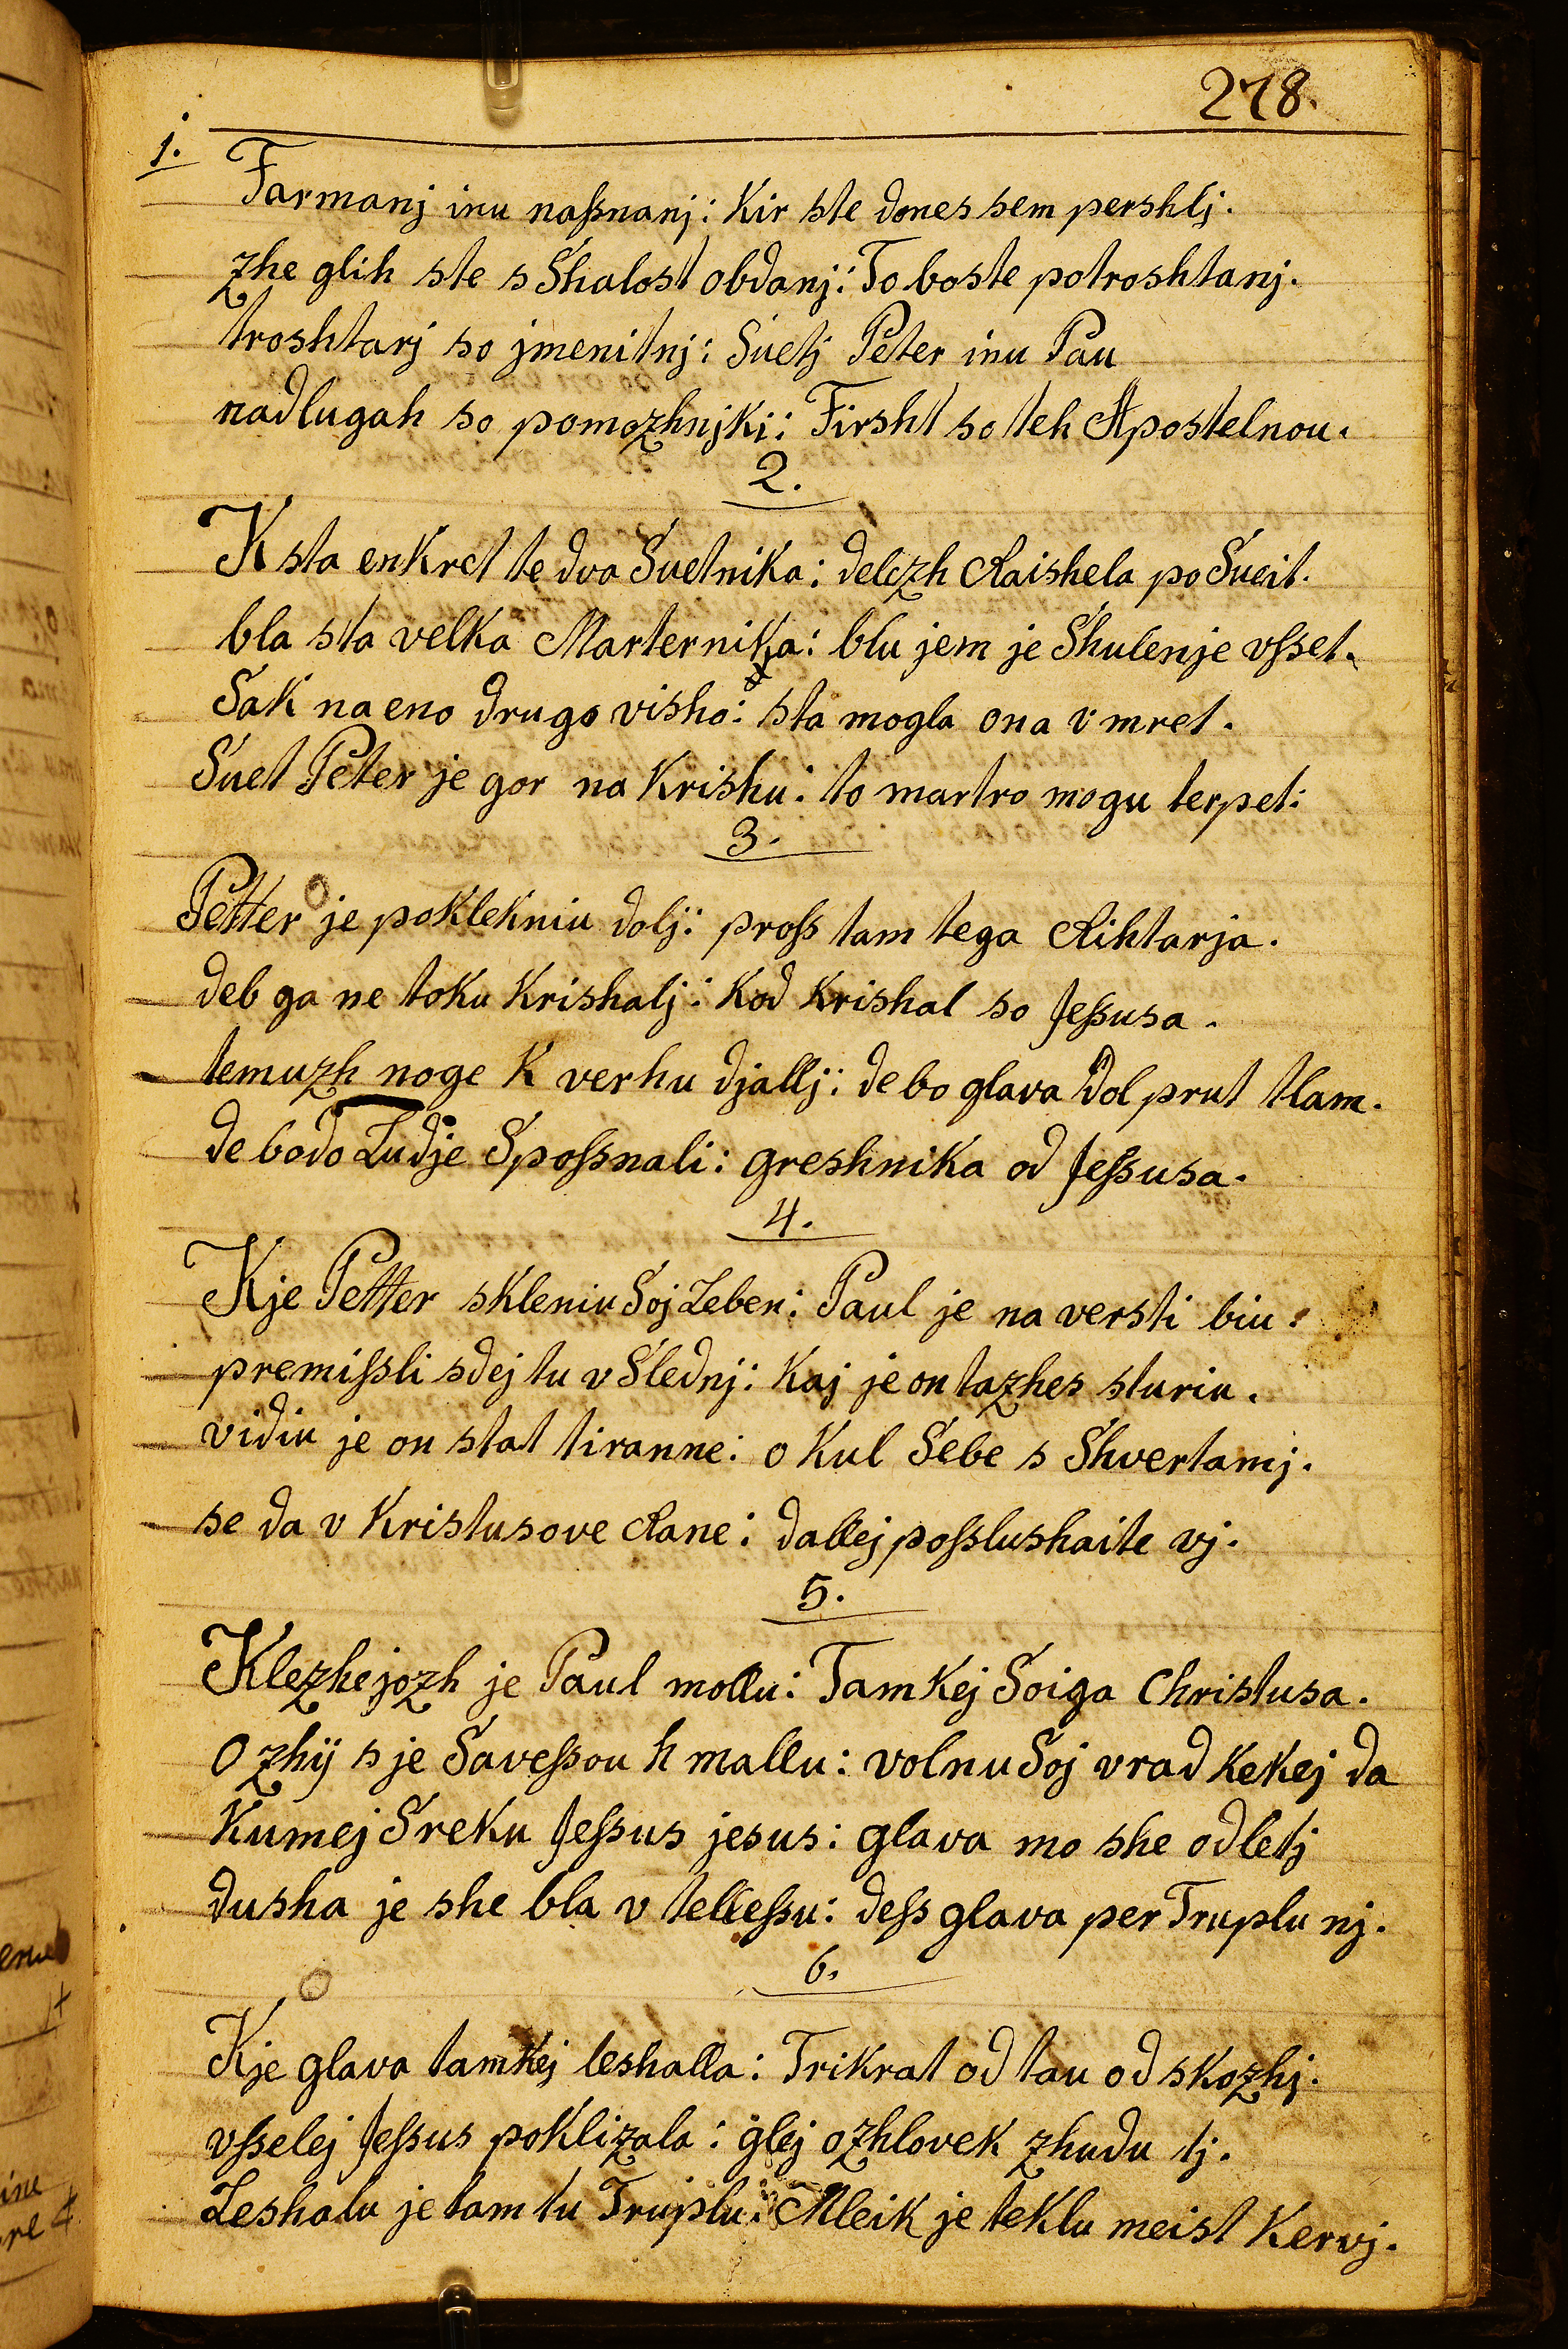 278.
1.
Farmanj inu naßnanj: Kir ste dones sem pershlj.
zhe glih ste s Shalost obdanj: To boste potroshtanj.
troshtarj so jmenitnj: Suetj Peter inu Pau
nadlugah so pomozhnjki: Firsht so teh Apostelnou.
2.
K sta enkret te dva Suetnika: delezh Raishela po Sueit.
bla sta velka Marternika: blu jem je Shulenje vsset.
Sak na eno drugo visho: sta mogla ona vmret.
Suet Peter je gor na Krishu: to martro mogu terpet:
3.
Petter je poklekniu dolj: pross tam tega Rihtarja.
deb ga ne toku Krishalj: Kod Krishal so Jessusa.
temuzh noge K verhu djallj: de bo glava dol prut tlam.
de bodo Ludje Spossnali: greshnika od Jessusa.
4.
Kje Petter skleniu Soj Leben: Paul je na versti biu:
premissli sdej tu v Slednj: Kaj je on tazhes sturiu.
vidiu je on stat tiranne: o Kul Sebe s Shvertamj.
se da v Kristusove Rane: dallej posslushaite vj.
5.
Klezhejozh je Paul mollu: Tam Kej Soiga Christusa.
O zhij s je Savessou h mallu: volnu Soj vrad Kekej da
Kumej Sreku Jessus jesus: glava mo she odletj
dusha je she bla v tellessu: dess glava per Truplu nj.
6.
Kje glava tamkej leshalla: Trikrat od tau od skozhj.
vsselej Jessus poklizala: glej ozhlovek zhudu tj.
Leshalu je tam tu Truplu: Mleik je teklu meist Kervj.